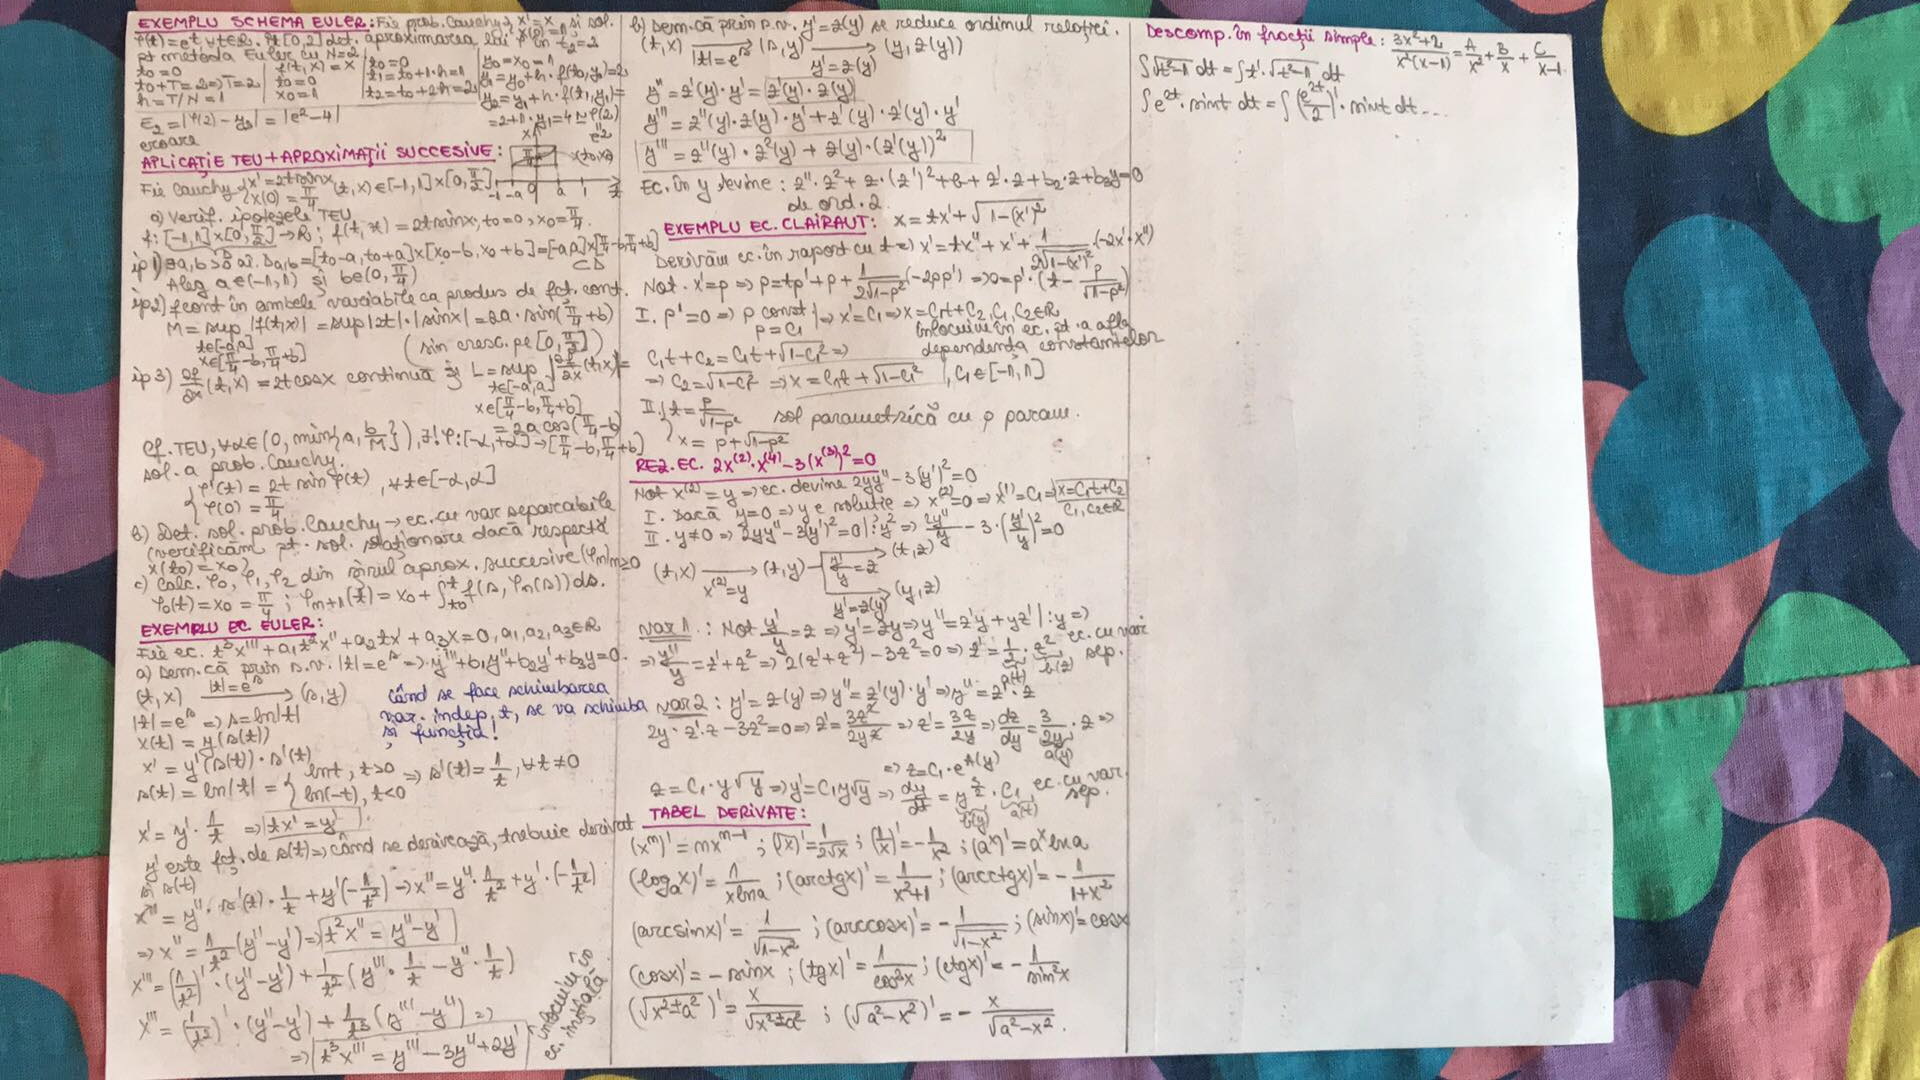 EXEMPLU SCHEMA EULER: Fie prob. Cauchy { x' = x, x(0) = 1 și sol.
φ(t) = e^t, ∀t∈R. Pt [0,2] det. aproximarea lui φ în t₂=2
pt metoda Euler cu N=2.
t₀=0 | f(t,x) = x | t₀=0 | y₀=x₀=1
t₀+T=2 ⇒ T=2 | t₀=0 | t₁=t₀+1·h=1 | y₁=y₀+h·f(t₀,y₀)=2
h=T/N=1 | x₀=1 | t₂=t₀+2h=2 | y₂=y₁+h·f(t₁,y₁)=
=2+1·y₁=4≃φ(2)
e²
ε₂=|φ(2)-y₂|=|e²-4|
eroare
APLICAȚIE TEU+APROXIMAȚII SUCCESIVE:
Fie Cauchy { x'=2t sinx, x(0)=π/4 (t,x)∈[-1,1]×[0,π/2]
-1 -a 0 a 1
a) Verif. ipotezele TEU
f: [-1,1]×[0,π/2]→R; f(t,x)=2t sinx, t₀=0, x₀=π/4.
ip 1) ∃a,b>0 aî. Da,b=[t₀-a,t₀+a]×[x₀-b,x₀+b]=[-a,a]×[π/4-b,π/4+b] ⊂D
Aleg a∈(-1,1) și b∈(0,π/4)
ip2) f cont în ambele variabile ca produs de fct. cont.
M=sup |f(t,x)|=sup|2t|·|sinx|=2a·sin(π/4+b)
t∈[-a,a]
x∈[π/4-b,π/4+b] (sin cresc. pe [0,π/2])
ip 3) ∂f/∂x (t,x)=2t cosx continuă și L=sup |∂f/∂x (t,x)|=
t∈[-a,a]
x∈[π/4-b,π/4+b]
=2a cos(π/4-b)
Cf. TEU, ∀α∈(0,min{a,b/M}), ∃! φ:[-α,+α]→[π/4-b,π/4+b]
sol. a prob. Cauchy.
{ φ'(t)=2t sin φ(t), ∀t∈[-α,α]
φ(0)=π/4
b) Det. sol. prob. Cauchy→ec. cu var separabile
(verificăm pt. sol. staționare dacă respectă
x(t₀)=x₀)
c) Calc. φ₀, φ₁, φ₂ din șirul aprox. succesive (φn)n≥0
φ₀(t)=x₀=π/4; φn+1(t)=x₀+∫t₀^t f(s,φn(s))ds.
EXEMPLU EC. EULER:
Fie ec. t³x'''+a₁t²x''+a₂tx'+a₃x=0, a₁,a₂,a₃∈R
a) Dem. că prin s.v. |t|=e^s ⇒ y'''+b₁y''+b₂y'+b₃y=0.
(t,x) |t|=e^s → (s,y) când se face schimbarea
|t|=e^s ⇒ s=ln|t| var. indep. t, se va schimba
x(t)=y(s(t)) și funcția!
x'=y'(s(t))·s'(t)
s(t)=ln|t|={ lnt, t>0; ln(-t), t<0 ⇒ s'(t)=1/t, ∀t≠0
x'=y'·1/t ⇒ tx'=y'.
y' este fct. de s(t) ⇒ când se derivează, trebuie derivat
și s(t)
x''=y''·s'(t)·1/t+y'(-1/t²) ⇒ x''=y''·1/t²+y'·(-1/t²)
⇒ x''=1/t²(y''-y') ⇒ t²x''=y''-y'
x'''=(1/t²)'·(y''-y')+1/t²(y'''·1/t-y''·1/t)
x'''=(1/t²)'·(y''-y')+1/t³(y'''-y'') ⇒
⇒ t³x'''=y'''-3y''+2y'
înlocuim în ec. inițială
b) Dem. că prin s.v. y'=z(y) se reduce ordinul relației.
(t,x) |t|=e^s → (s,y) y'=z(y) → (y,z(y))
y''=z'(y)·y'=z'(y)·z(y)
y'''=z''(y)·z(y)·y'+z'(y)·z'(y)·y'
y'''=z''(y)·z²(y)+z(y)·(z'(y))²
Ec. în y devine: z''·z²+z·(z')²+b₁·z'·z+b₂·z+b₃y=0
de ord. 2
EXEMPLU EC. CLAIRAUT: x=tx'+√(1-(x')²)
Derivăm ec. în raport cu t ⇒ x'=tx''+x'+1/(2√(1-(x')²))·(-2x'·x'')
Not. x'=p ⇒ p=tp'+p+1/(2√(1-p²))(-2pp') ⇒ 0=p'·(t-p/√(1-p²))
I. p'=0 ⇒ p const | ⇒ x'=C₁ ⇒ x=C₁t+C₂, C₁,C₂∈R
p=C₁ înlocuim în ec. pt. a afla
dependența constantelor
C₁t+C₂=C₁t+√(1-C₁²) ⇒
⇒ C₂=√(1-C₁²) ⇒ x=C₁t+√(1-C₁²), C₁∈[-1,1]
II. { t=p/√(1-p²) sol parametrică cu p param.
x=p+√(1-p²)
REZ. EC. 2x⁽²⁾·x⁽⁴⁾-3(x⁽³⁾)²=0
Not x⁽²⁾=y ⇒ ec. devine 2yy''-3(y')²=0
I. Dacă y=0 ⇒ y e soluție ⇒ x⁽²⁾=0 ⇒ x⁽¹⁾=C₁ ⇒ x=C₁t+C₂
C₁,C₂∈R
II. y≠0 ⇒ 2yy''-3(y')²=0 |:y² ⇒ 2y''/y-3·(y'/y)²=0
(t,x) x⁽²⁾=y → (t,y) y'/y=z → (t,z)
y'=z(y) → (y,z)
var1: Not y'/y=z ⇒ y'=zy ⇒ y''=z'y+yz' |:y ⇒
⇒ y''/y=z'+z² ⇒ 2(z'+z²)-3z²=0 ⇒ z'=1/2·z² ec. cu var sep.
a(t) b(z)
var2: y'=z(y) ⇒ y''=z'(y)·y' ⇒ y''=z'·z
2y·z'·z-3z²=0 ⇒ z'=3z²/2yz ⇒ z'=3z/2y ⇒ dz/dy=3/2y·z ⇒
a(y)
⇒ z=C₁·e^A(y)
z=C₁·y√y ⇒ y'=C₁y√y ⇒ dy/dt=y^(3/2)·C₁ ec. cu var. sep.
b(y) a(t)
TABEL DERIVATE:
(x^n)'=nx^(n-1); (√x)'=1/(2√x); (1/x)'=-1/x²; (a^x)'=a^x lna
(logₐx)'=1/(xlna); (arctgx)'=1/(x²+1); (arcctgx)'=-1/(1+x²)
(arcsinx)'=1/√(1-x²); (arccosx)'=-1/√(1-x²); (sinx)'=cosx
(cosx)'=-sinx; (tgx)'=1/cos²x; (ctgx)'=-1/sin²x
(√(x²±a²))'=x/√(x²±a²); (√(a²-x²))'=-x/√(a²-x²).
Descomp. în fracții simple: (3x²+2)/(x²(x-1))=A/x²+B/x+C/(x-1)
∫√(t²-1) dt=∫t'·√(t²-1) dt
∫e^(2t)·sint dt=∫(e^(2t)/2)'·sint dt...